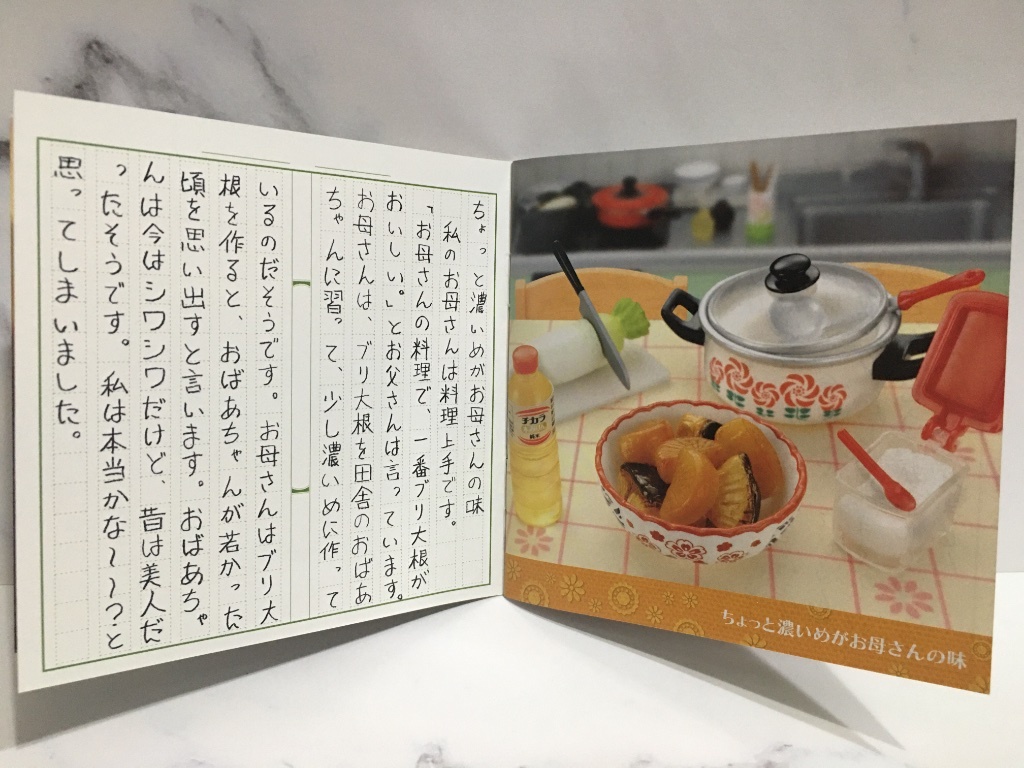 ちょっと濃いめがお母さんの味
私のお母さんは料理上手です。
「お母さんの料理で、一番ブリ大根が
おいしい。」とお父さんは言っています。
お母さんは、ブリ大根を田舎のおばあ
ちゃんに習って、少し濃いめに作って
いるのだそうです。お母さんはブリ大
根を作ると、おばあちゃんが若かった
頃を思い出すと言います。おばあちゃ
んは今はシワシワだけど、昔は美人だ
ったそうです。私は本当かな～～？と
思ってしまいました。
チカラ
ちょっと濃いめがお母さんの味